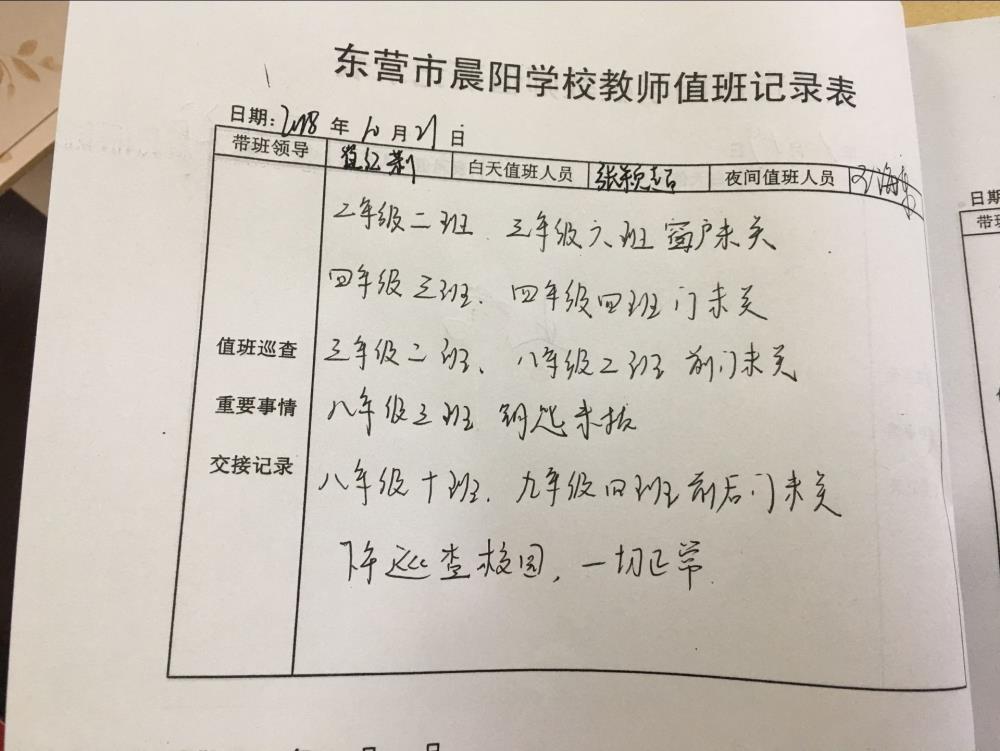 东营市晨阳学校教师值班记录表
日期:2018年10月21日
带班领导 白天值班人员 张颖 夜间值班人员
二年级二班、三年级六班窗户未关
四年级三班、四年级四班门未关
值班巡查 三年级二班、八年级二班前门未关
重要事情 八年级三班 钥匙未拔
交接记录 八年级十班、九年级四班前后门未关
下午巡查校园,一切正常
日期
带班
年 月 日